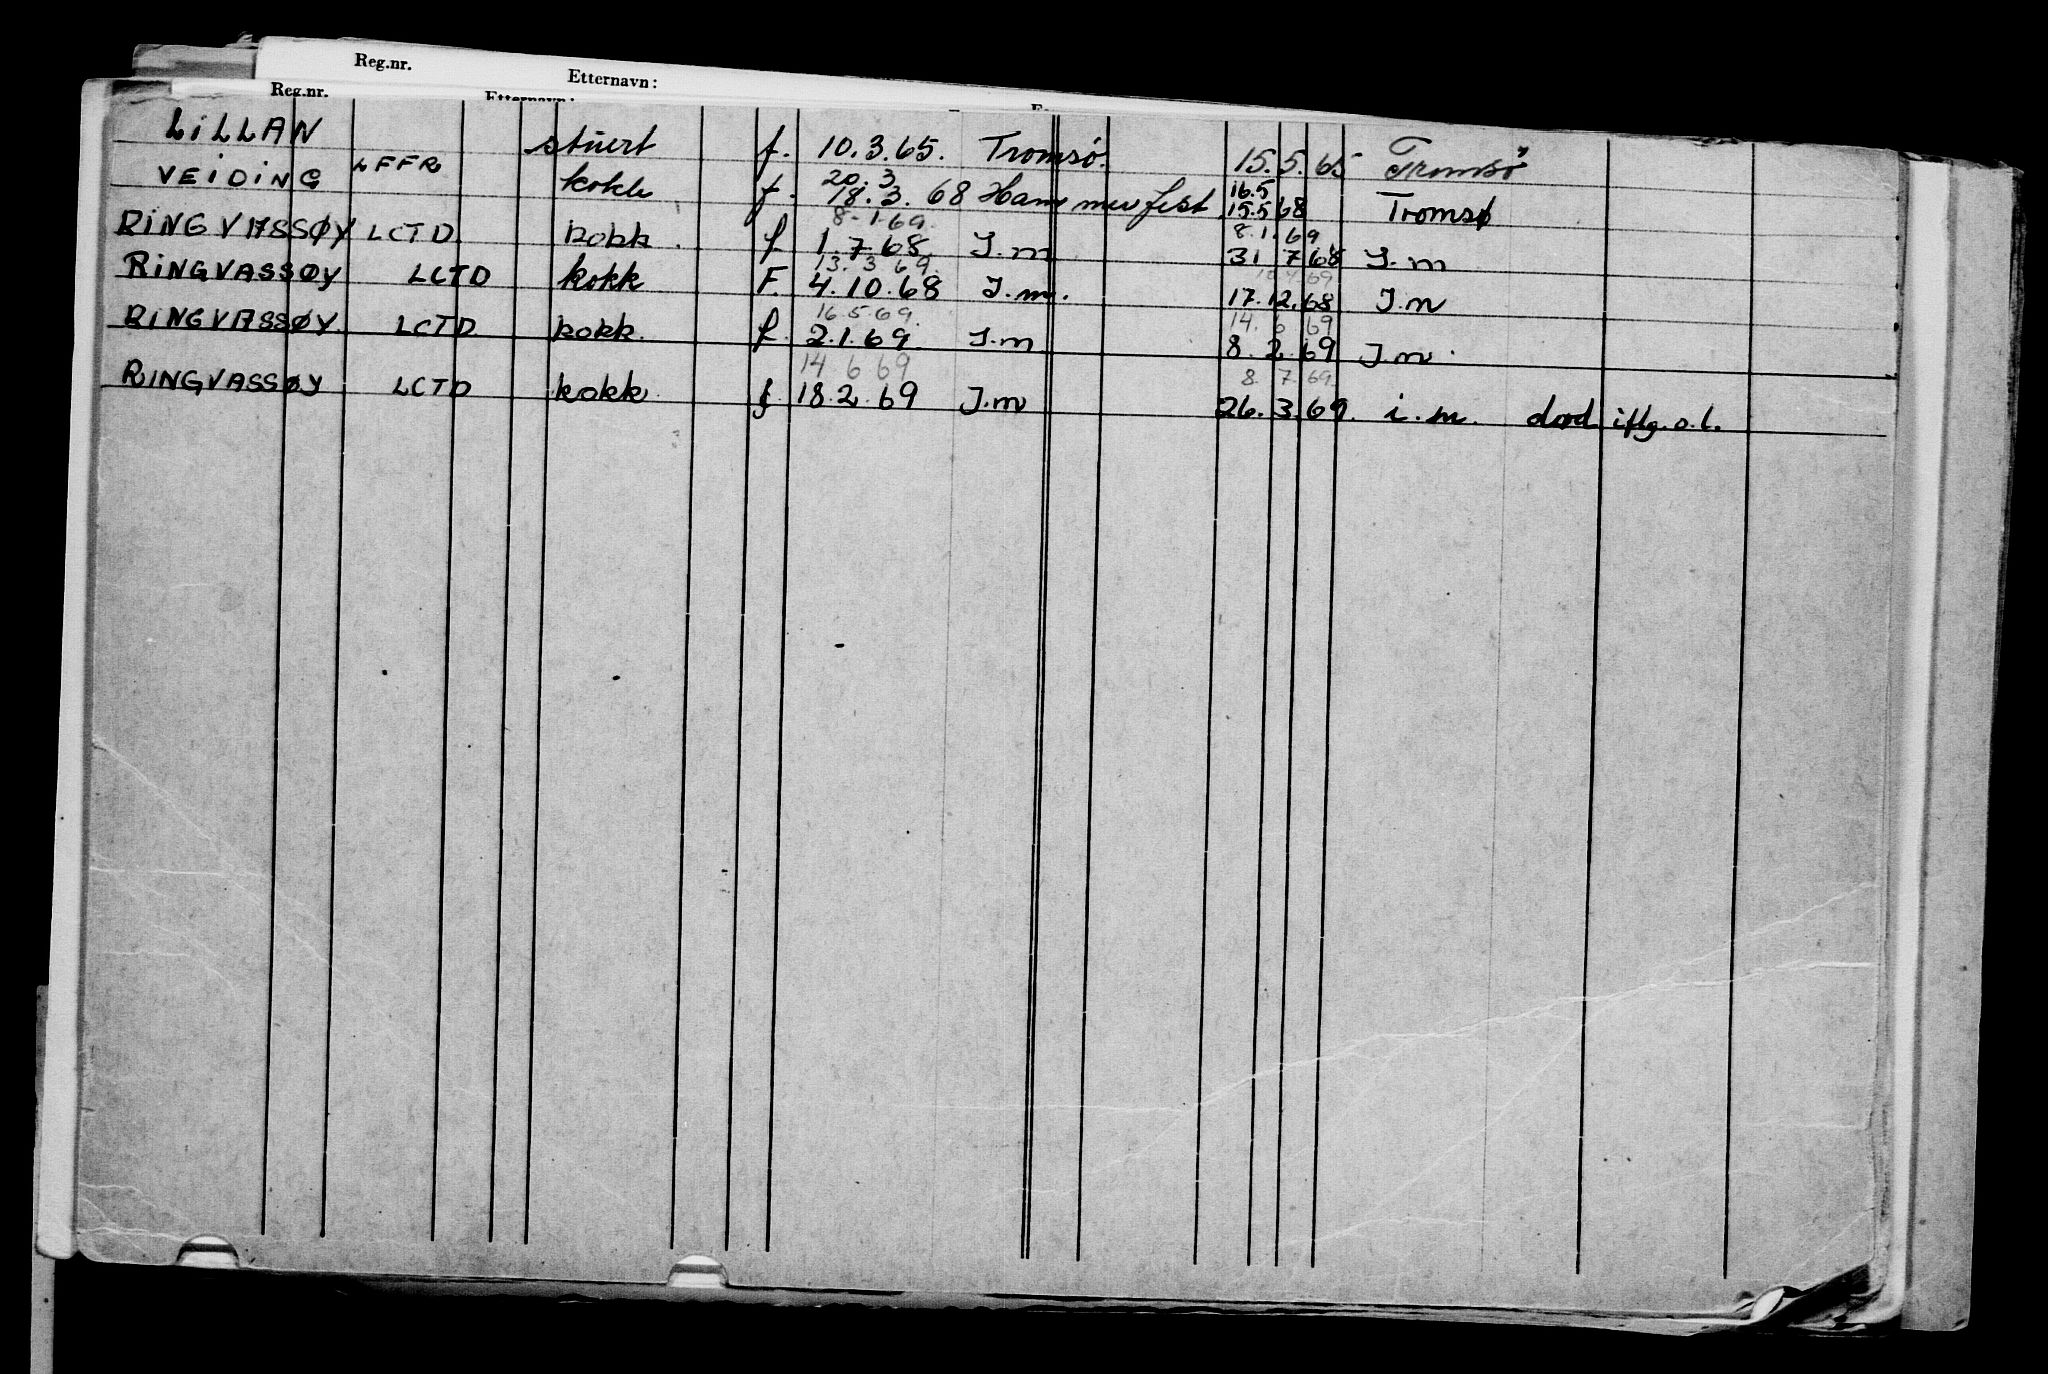 Reg.nr. Etternavn:
Reg.nr. Etternavn:
LILLAN stuert f. 10.3.65. Tromsø. 15.5.65 Tromsø
20.3 16.5
VEIDING LFFR kokk f. 18.3.68 Hammerfest 15.5 68 Tromsø
8.1.69. 8.1.69
RINGVASSØY LCTD kokk. f. 1.7.68 I.m 31.7 68 I.m
13.3 69. 69
RINGVASSØY LCTD kokk F. 4.10.68 I.m. 17.12.68 I.m
16.5.69. 14.6 69
RINGVASSØY LCTD kokk. f. 2.1.69. I.m 8.2.69 I.m.
14 6 69 8.7.69.
RINGVASSØY LCTD kokk f. 18.2.69 I.m 26.3.69. i.m. død iflg. o.l.